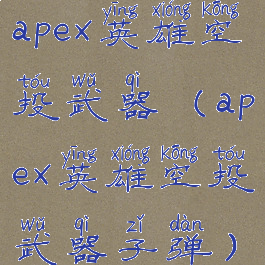 yīng xióng kōng
apex英雄空
tóu wǔ qì
投武器(ap
yīng xióng kōng tóu
ex英雄空投
wǔ qì zǐ dàn
武器子弹)